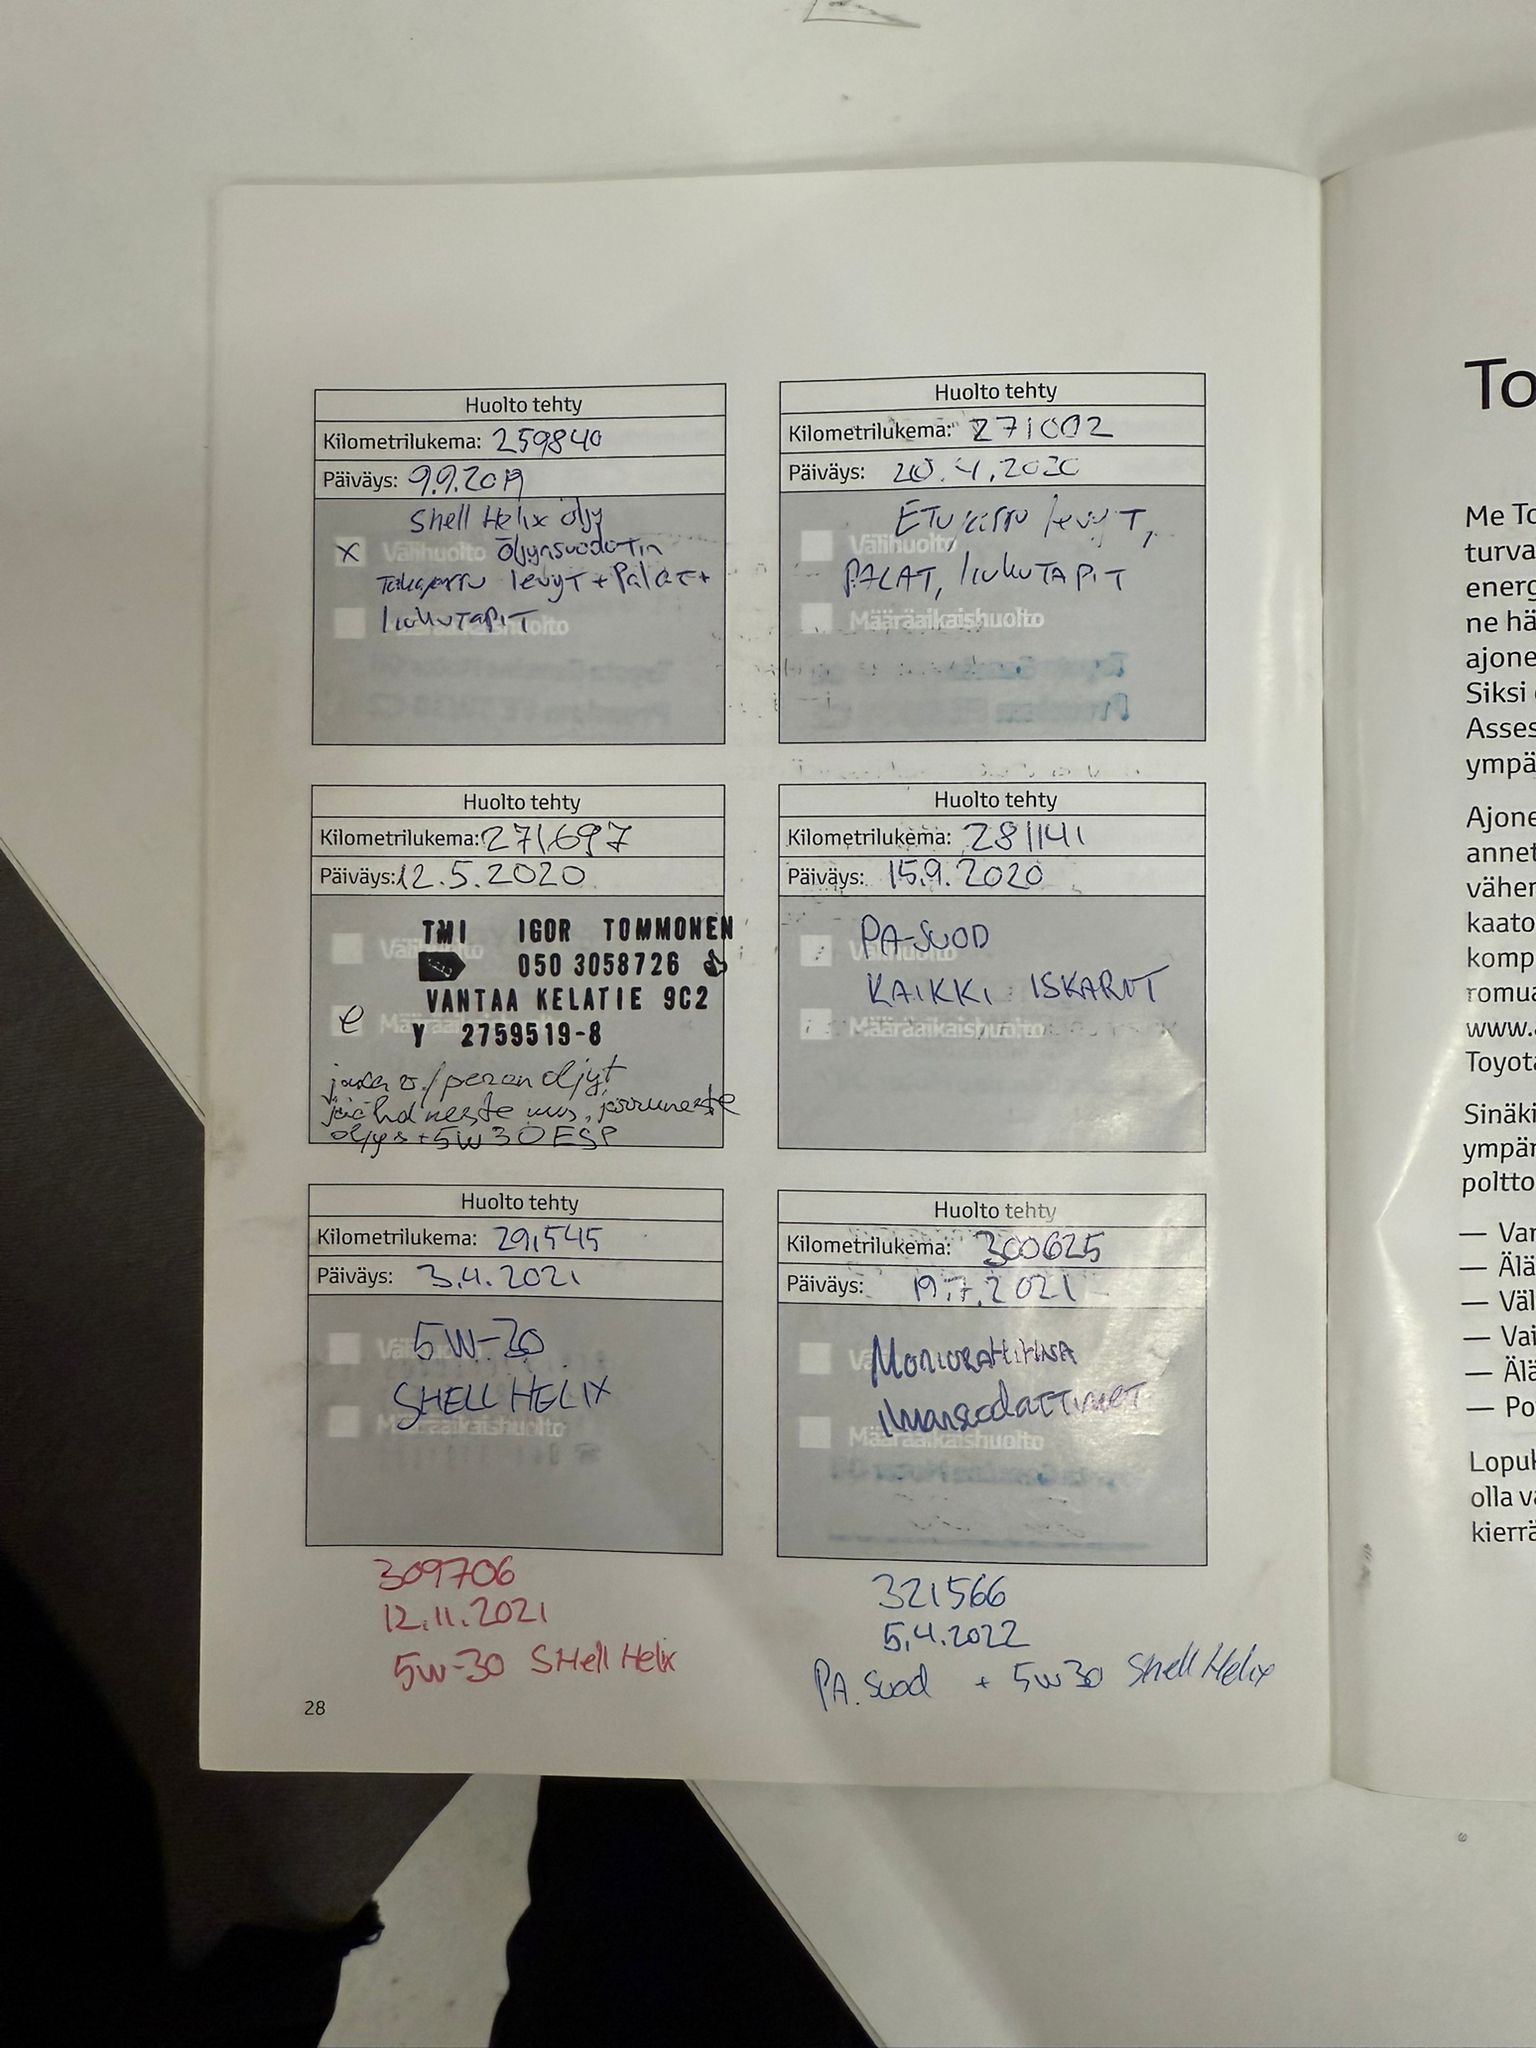 Huolto tehty
Kilometrilukema: 259840
Päiväys: 9.9.2019
Shell Helix öljy
x Välihuolto öljynsuodatin
Takajarru levyt + Palat +
liukutapit
Määräaikaishuolto
Huolto tehty
Kilometrilukema: 271002
Päiväys: 20.4.2020
Etujarru levyt,
Välihuolto
PALAT, liukuTAPIT
Määräaikaishuolto
Huolto tehty
Kilometrilukema: 271697
Päiväys: 12.5.2020
TMI IGOR TOMMONEN
Välihuolto
050 3058726
VANTAA KELATIE 9C2
Määräaikaishuolto
Y 2759519-8
peran öljyt
jäähd neste uus, jarruneste
öljys + 5W30 ESP
Huolto tehty
Kilometrilukema: 281141
Päiväys: 15.9.2020
PA-SUOD
Välihuolto
KAIKKI ISKARIT
Määräaikaishuolto
Huolto tehty
Kilometrilukema: 291545
Päiväys: 3.4.2021
5W-30
Välihuolto
SHELL HELIX
Määräaikaishuolto
Huolto tehty
Kilometrilukema: 300625
Päiväys: 19.7.2021
MONIURAHIHNA
Välihuolto
ilmansuodattimet
Määräaikaishuolto
309706
12.11.2021
5W-30 SHell Helix
321566
5.4.2022
PA.Suod + 5W30 Shell Helix
28
To
Me To
turva
energ
ne hä
ajone
Siksi
Asses
ympä
Ajone
annet
väher
kaato
komp
romua
www.
Toyota
Sinäki
ympär
poltto
— Var
— Älä
— Väl
— Vai
— Älä
— Po
Lopuk
olla va
kierrä